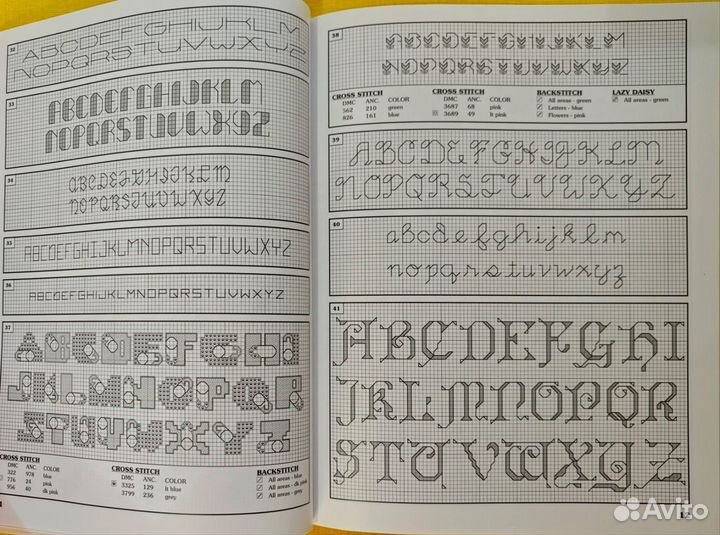 32
ABCDEFGHIJKLM
NOPQRSTUVWXYZ
33
ABCDEFGHIJKLM
NOPQRSTUVWXYZ
34
ABCDEFGHIJKLM
NOPQRSTUVWXYZ
35
ABCDEFGHIJKLMNOPQRSTUVWXYZ
36
ABCDEFGHIJKLMNOPQRSTUVWXYZ
37
ABCDEFGHI
JKLMNOPQR
STUVWXYZ
CROSS STITCH
DMC ANC. COLOR
322 978 blue
776 24 pink
956 40 dk pink
CROSS STITCH
DMC ANC. COLOR
3325 129 lt blue
3799 236 grey
BACKSTITCH
All areas - blue
All areas - dk pink
All areas - grey
38
ABCDEFGHIJKLM
NOPQRSTUVWXYZ
CROSS STITCH
DMC ANC. COLOR
562 210 green
826 161 blue
CROSS STITCH
DMC ANC. COLOR
3687 68 pink
3689 49 lt pink
BACKSTITCH
All areas - green
Letters - blue
Flowers - pink
LAZY DAISY
All areas - green
39
ABCDEFGHIJKLM
NOPQRSTUVWXYZ
40
abcdefghijklm
nopqrstuvwxyz
41
ABCDEFGHI
JKLMNOPQR
STUVWXYZ
Avito